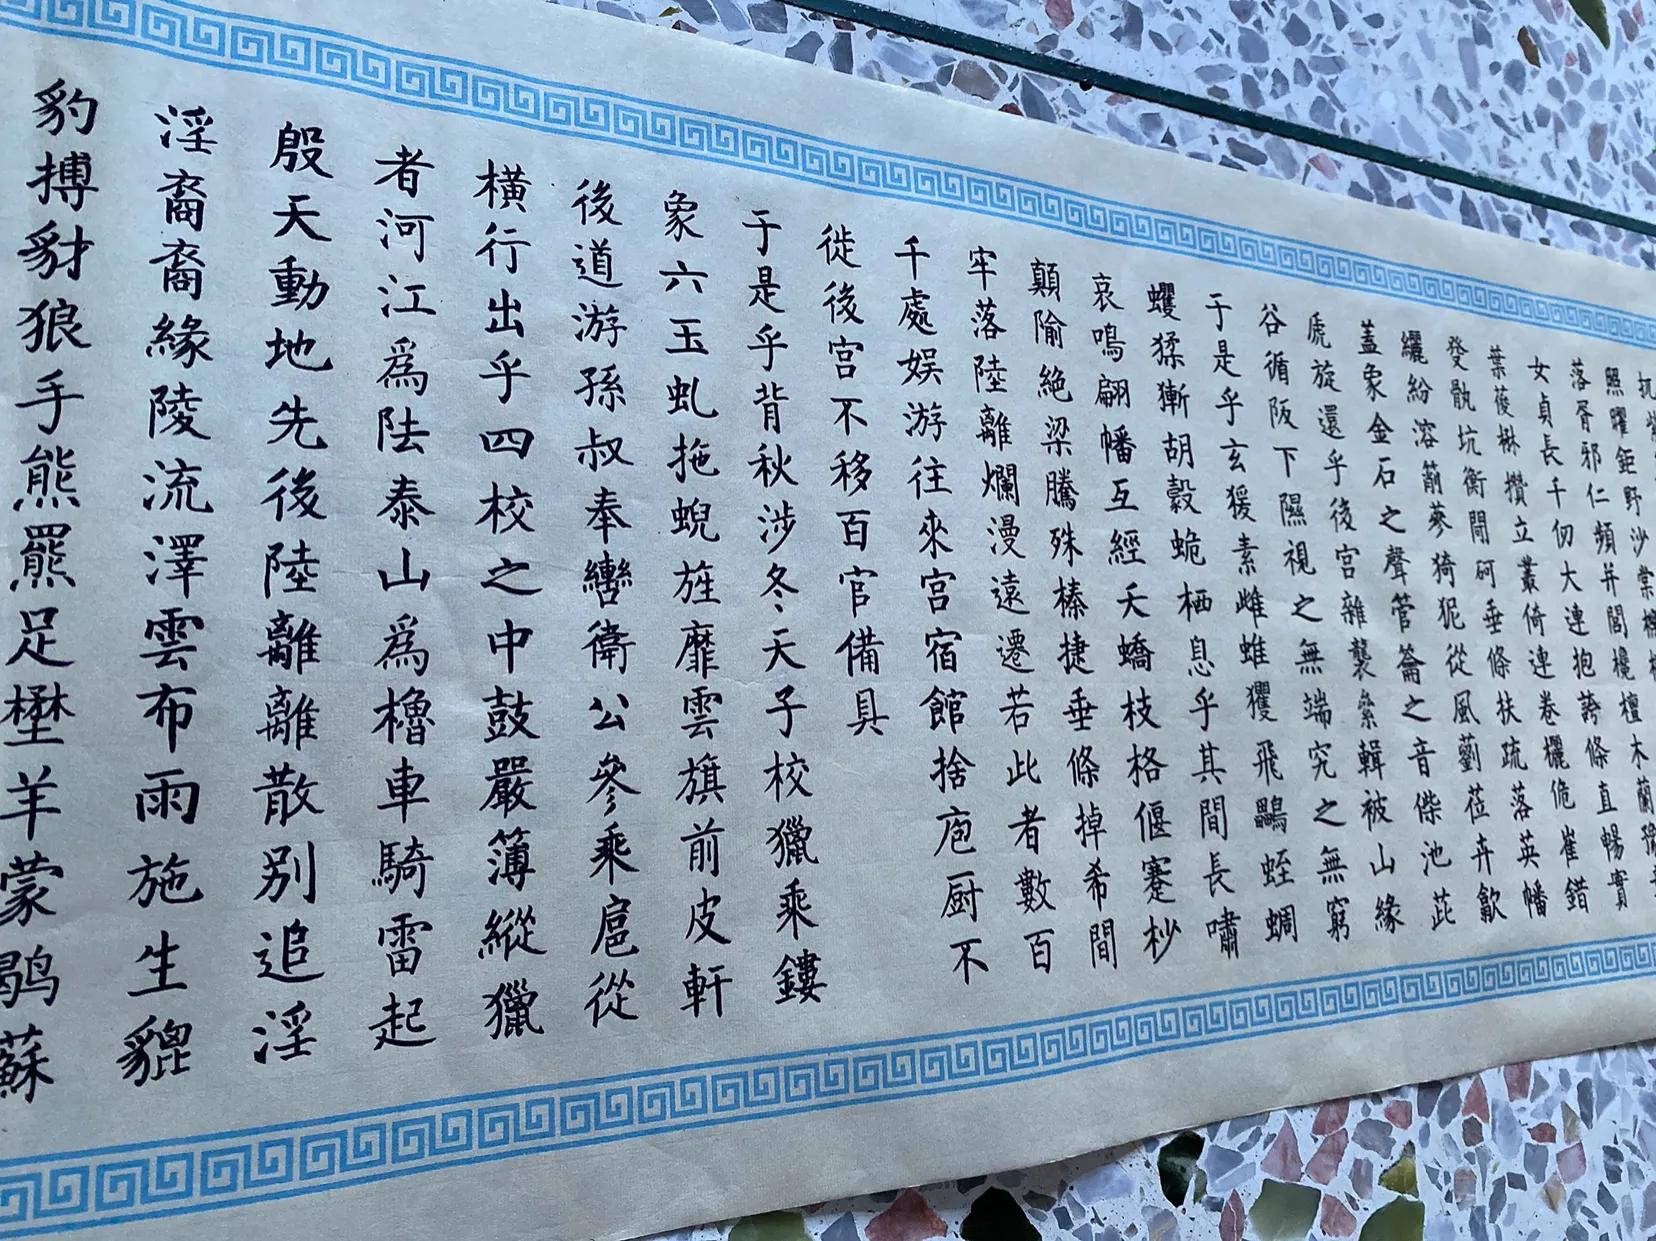 照曜鉅野沙棠
落胥邪仁頻并閭欃檀木蘭豫章
女貞長千仞大連抱誇條直暢實
葉葰楙攢立叢倚連卷欐佹崔錯
癹骫坑衡閜砢垂條扶疏落英幡
纚紛溶萷蔘猗狔從風藰莅卉歙
蓋象金石之聲管籥之音傑池茈
虒旋還乎後宮雜襲絫輯被山緣
谷循阪下隰視之無端究之無窮
于是乎玄猨素雌蜼玃飛鸓蛭蜩
蠼猱獑胡縠蛫栖息乎其間長嘯
哀鳴翩幡互經夭蟜枝格偃蹇杪
顛隃絶梁騰殊榛捷垂條掉希間
牢落陸離爛漫遠遷若此者數百
千處娛游往來宮宿館捨庖厨不
徙後宮不移百官備具
于是乎背秋涉冬天子校獵乘鏤
象六玉虬拖蜺旌靡雲旗前皮軒
後道游孫叔奉轡衛公參乘扈從
橫行出乎四校之中鼓嚴簿縱獵
者河江爲阹泰山爲櫓車騎雷起
殷天動地先後陸離離散別追淫
淫裔裔緣陵流澤雲布雨施生貔
豹搏豺狼手熊羆足壄羊蒙鶡蘇